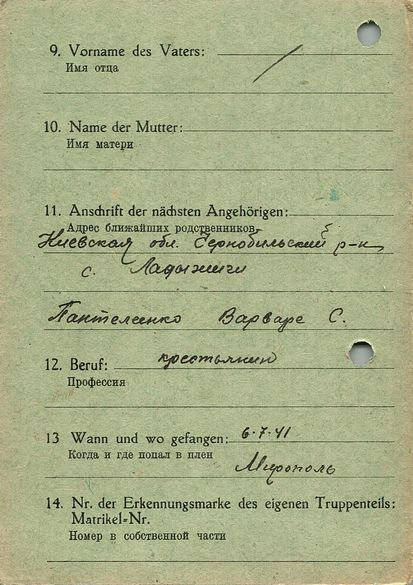 9. Vorname des Vaters: /
Имя отца
10. Name der Mutter:
Имя матери
11. Anschrift der nächsten Angehörigen:
Адрес ближайших родственников
Киевская обл. Чернобильский р-н
с. Ладыжичи
Пантелеенко Варваре С.
12. Beruf: крестьянин
Профессия
13 Wann und wo gefangen: 6.7.41
Когда и где попал в плен
Мирополь
14. Nr. der Erkennungsmarke des eigenen Truppenteils:
Matrikel=Nr.
Номер в собственной части